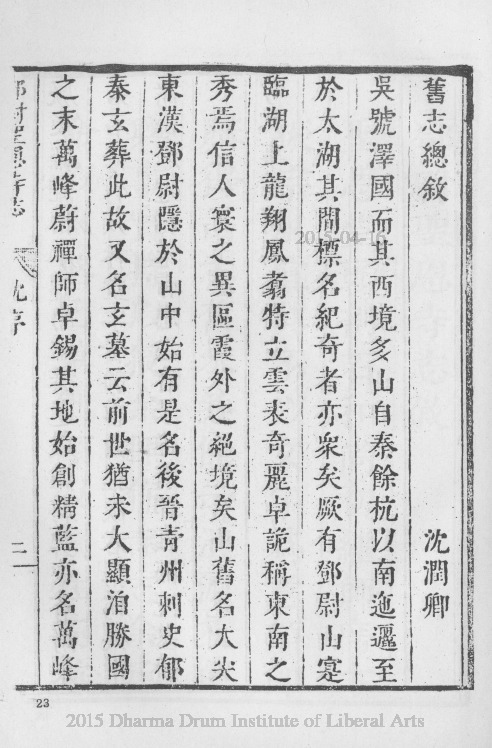 舊志總敘
沈潤卿
吳號澤國而其西境多山自秦餘杭以南迤邐至
於太湖其間標名紀奇者亦衆矣厥有鄧尉山寔
臨湖上龍翔鳳翥特立雲表奇麗卓詭稱東南之
秀焉信人寰之異區霞外之絕境矣山舊名大尖
東漢鄧尉隱於山中始有是名後晉青州刺史郁
泰玄葬此故又名玄墓云前世猶未大顯洎勝國
之末萬峰蔚禪師卓錫其地始創精藍亦名萬峰
沈序
二
23
2015-04-16
2015 Dharma Drum Institute of Liberal Arts